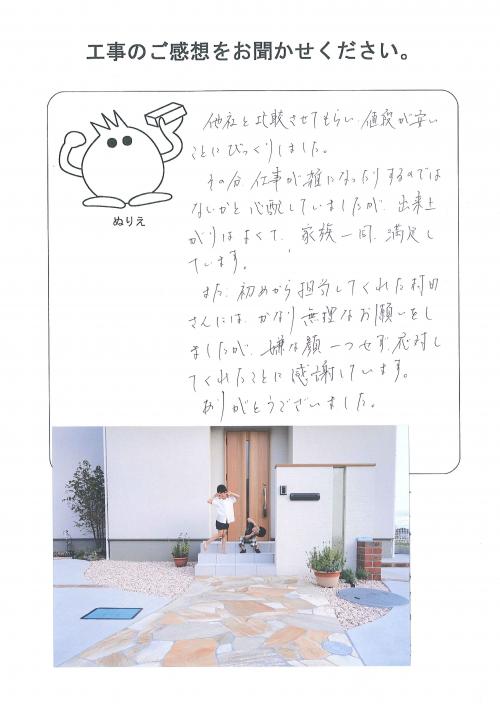 工事のご感想をお聞かせください。
他社と比較させてもらい、値段が安い
ことにびっくりしました。
その分、仕事が雑になったりするのでは
ないかと心配していましたが、出来上
がりはよくて、家族一同、満足し
ています。
また、初めから担当してくれた村田
さんには、かなり無理なお願いをし
ましたが、嫌な顔一つせず、応対し
てくれたことに感謝しています。
ありがとうございました。
ぬりえ